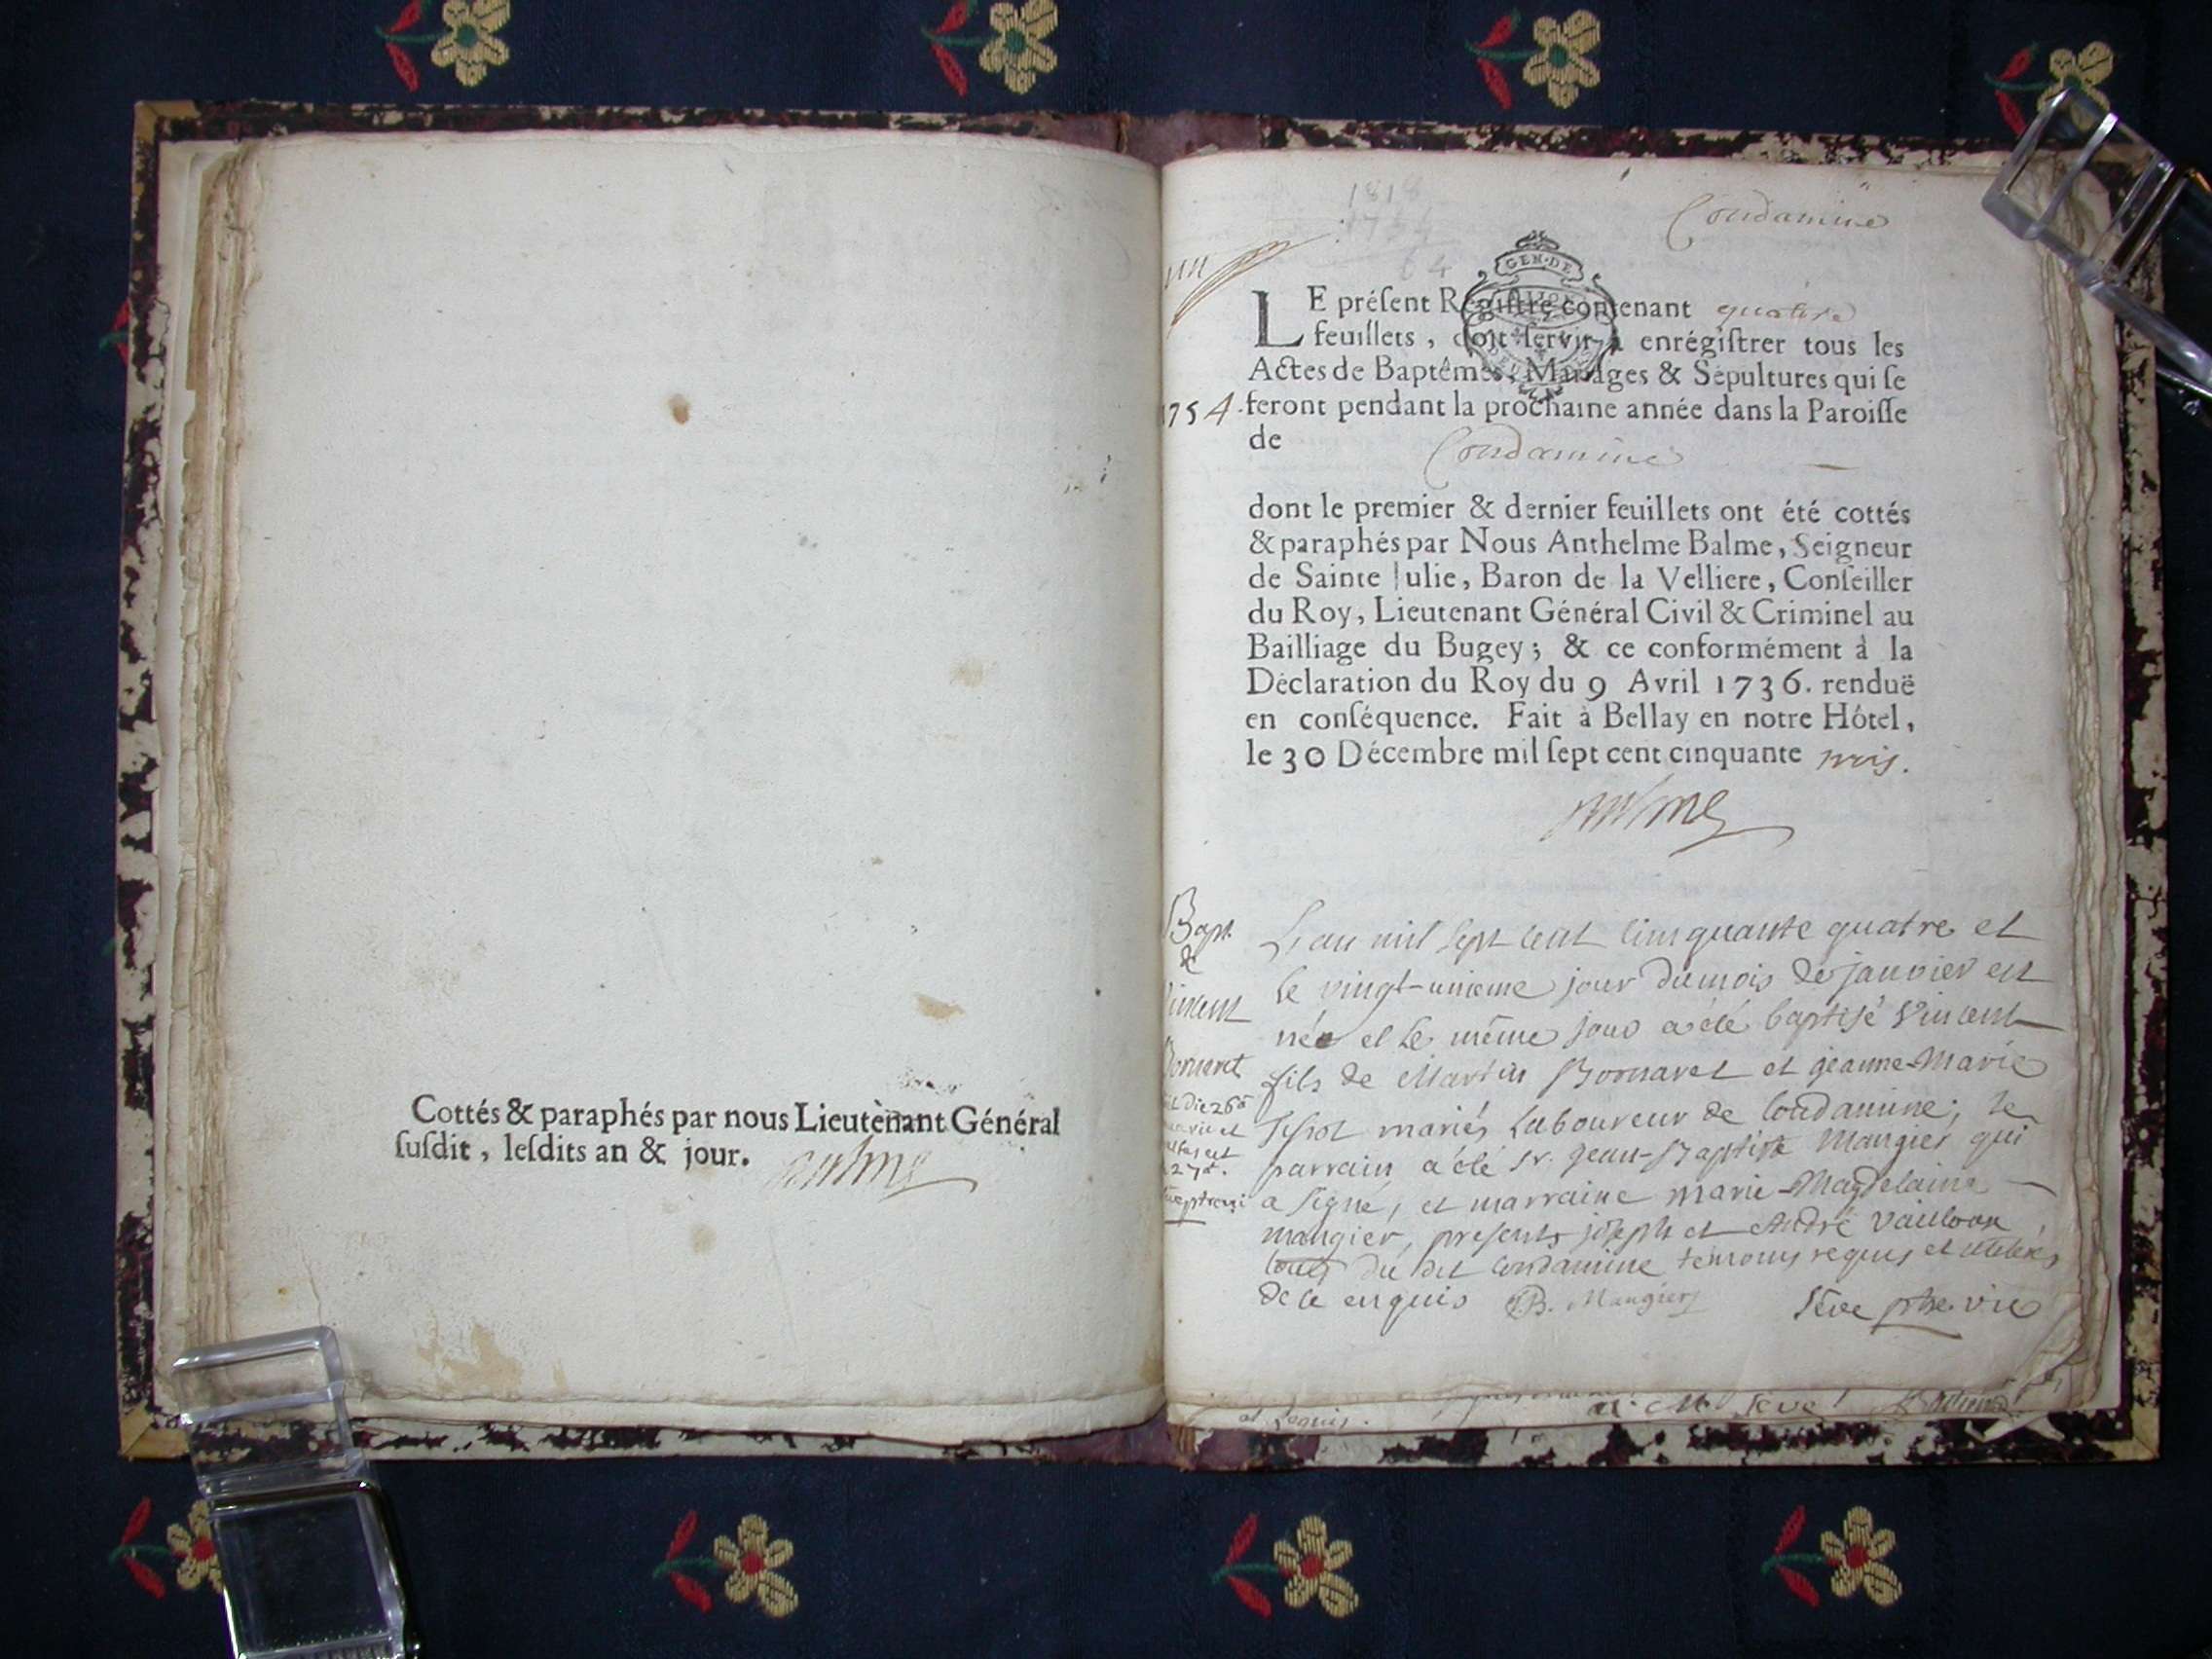 Cottés & paraphés par nous Lieutenant Général
ſuſdit, leſdits an & jour.
Balme
1818
1754
64
Condamine
un
GEN·DE
LE préſent Regiſtre contenant quatre
feuillets, doit ſervir à enrégiſtrer tous les
Actes de Baptêmes, Mariages & Sépultures qui ſe
1754. feront pendant la prochaine année dans la Paroiſſe
de Condamine
dont le premier & dernier feuillets ont été cottés
& paraphés par Nous Anthelme Balme, Seigneur
de Sainte Julie, Baron de la Velliere, Conſeiller
du Roy, Lieutenant Général Civil & Criminel au
Bailliage du Bugey; & ce conformément à la
Déclaration du Roy du 9 Avril 1736. renduë
en conſéquence. Fait à Bellay en notre Hôtel,
le 30 Décembre mil ſept cent cinquante trois.
Balme
Bapt.
de
Vincent
Bornaret
L'an mil sept cent cinquante quatre et
le vingt-unieme jour du mois de janvier est
né et le même jour a été baptisé Vincent
fils de Martin Bornaret et jeanne-Marie
mariés Laboureur de Condamine; le
parrain a été Sr. Jean-Baptiste Maugier qui
a signé, et marraine marie-Magdelaine
maugier, presents joseph et André
tous du dit Condamine temoins requis et
de ce enquis JB. Maugier Séve ptre. vic
et requis.
Seve